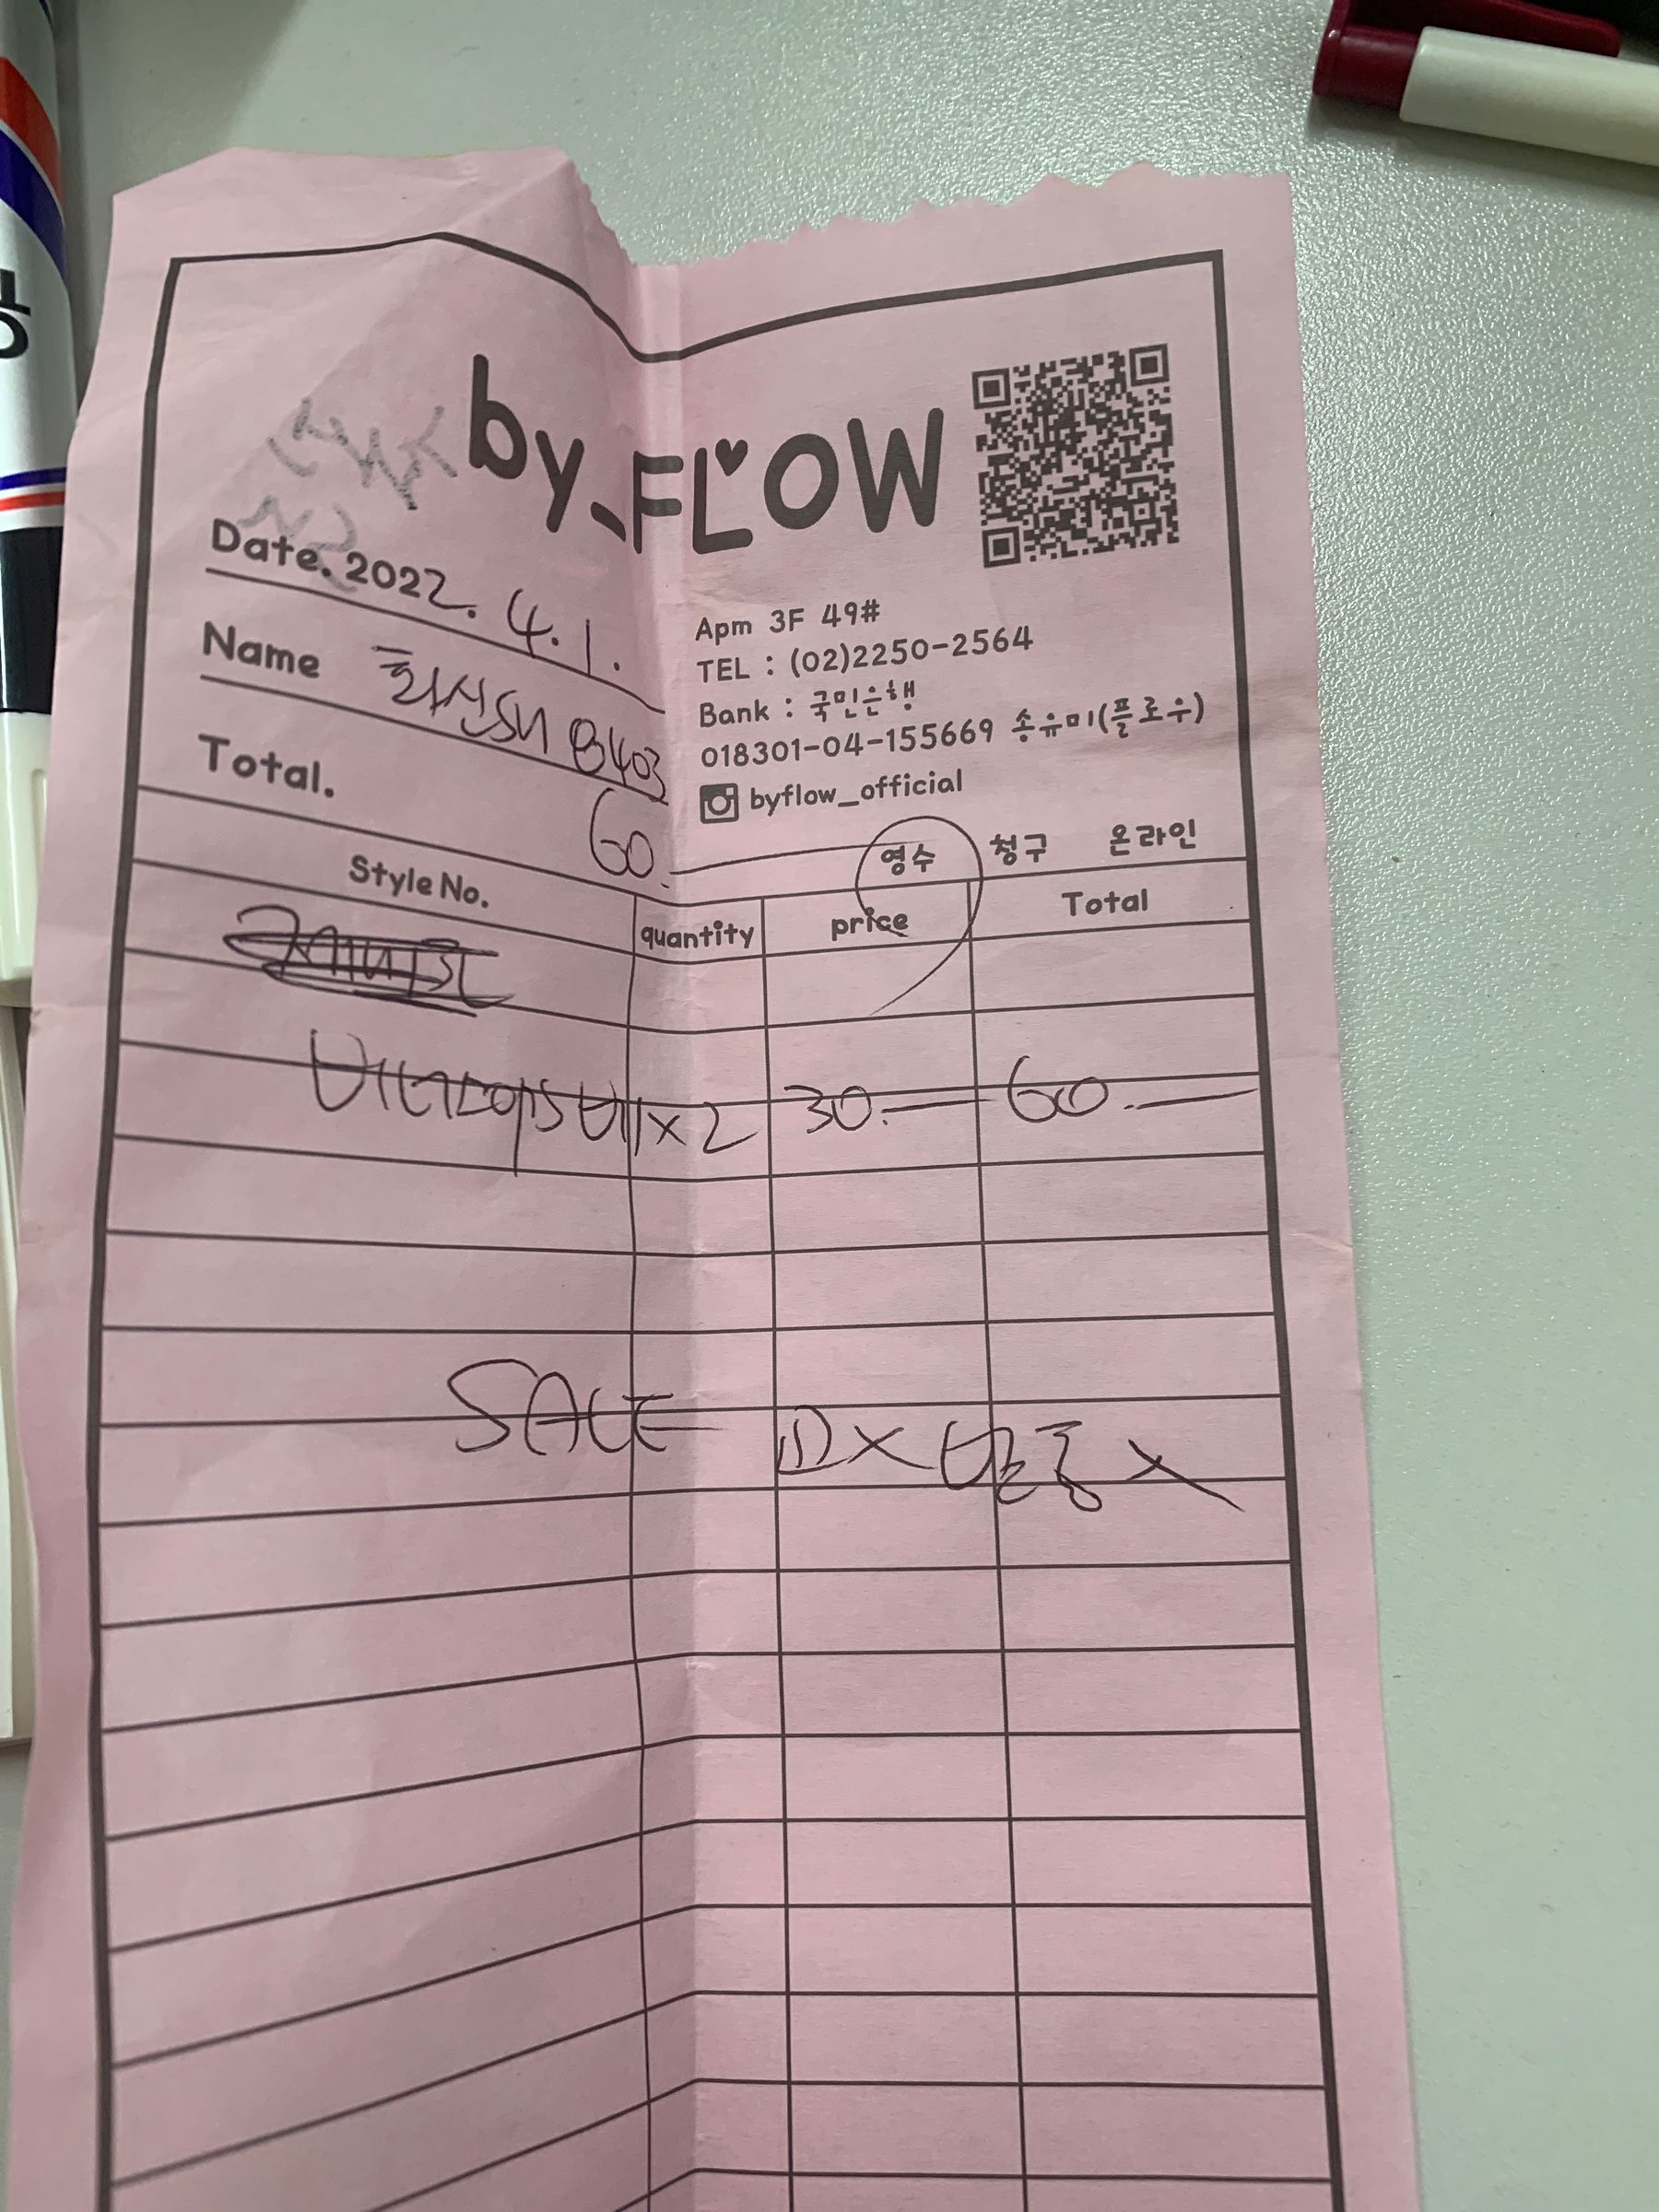 by_FLOW
Date. 2022. 4. 1.
Name 화신SN B403
Total. 60.
Apm 3F 49#
TEL : (02)2250-2564
Bank : 국민은행
018301-04-155669 송유미(플로우)
byflow_official
영수 청구 온라인
Style No. quantity price Total
x2 30. 60.
SALE 교X 반품X